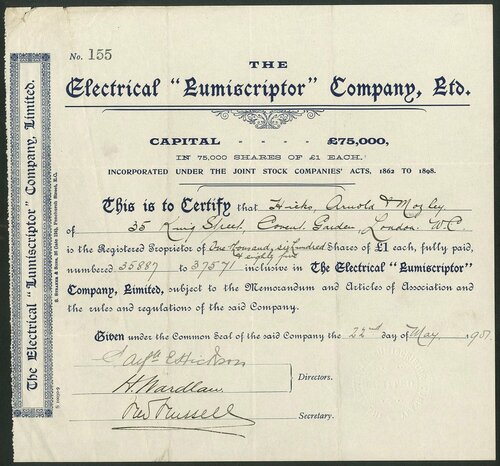 No. 155
THE
Electrical "Lumiscriptor" Company, Ltd.
CAPITAL - - - - £75,000,
IN 75,000 SHARES OF £1 EACH.
INCORPORATED UNDER THE JOINT STOCK COMPANIES' ACTS, 1862 TO 1898.
This is to Certify that Hicks, Arnold & Mozley
of 35 King Street, Covent Garden, London. W.C.
is the Registered Proprietor of One thousand, six hundred & eighty five Shares of £1 each, fully paid,
numbered 35887 to 37571 inclusive in The Electrical "Lumiscriptor"
Company, Limited, subject to the Memorandum and Articles of Association and
the rules and regulations of the said Company.
Given under the Common Seal of the said Company the 22nd day of May, 1901
H. Wardlaw
Directors.
Russell
Secretary.
The Electrical "Lumiscriptor" Company, Limited.